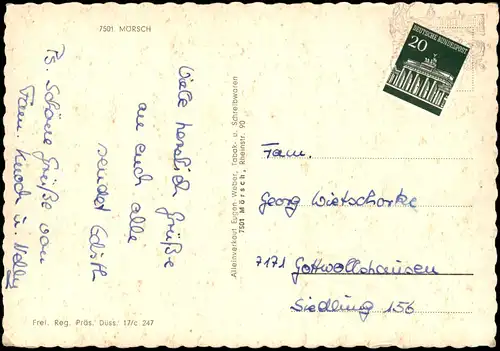 7501 MÖRSCH
Viele herzlich Grüße
an euch alle
sendet Edith
Ps. Schöne Grüße von
Fam. Knoch u. Nelly
Frei. Reg. Präs. Düss. 17/c 247
Alleinverkauf Eugen Weber, Tabak- u. Schreibwaren
7501 Mörsch, Rheinstr. 90
DEUTSCHE BUNDESPOST
20
Fam.
Georg Wietschorke
7171 Gottwollshausen
Siedlung 156